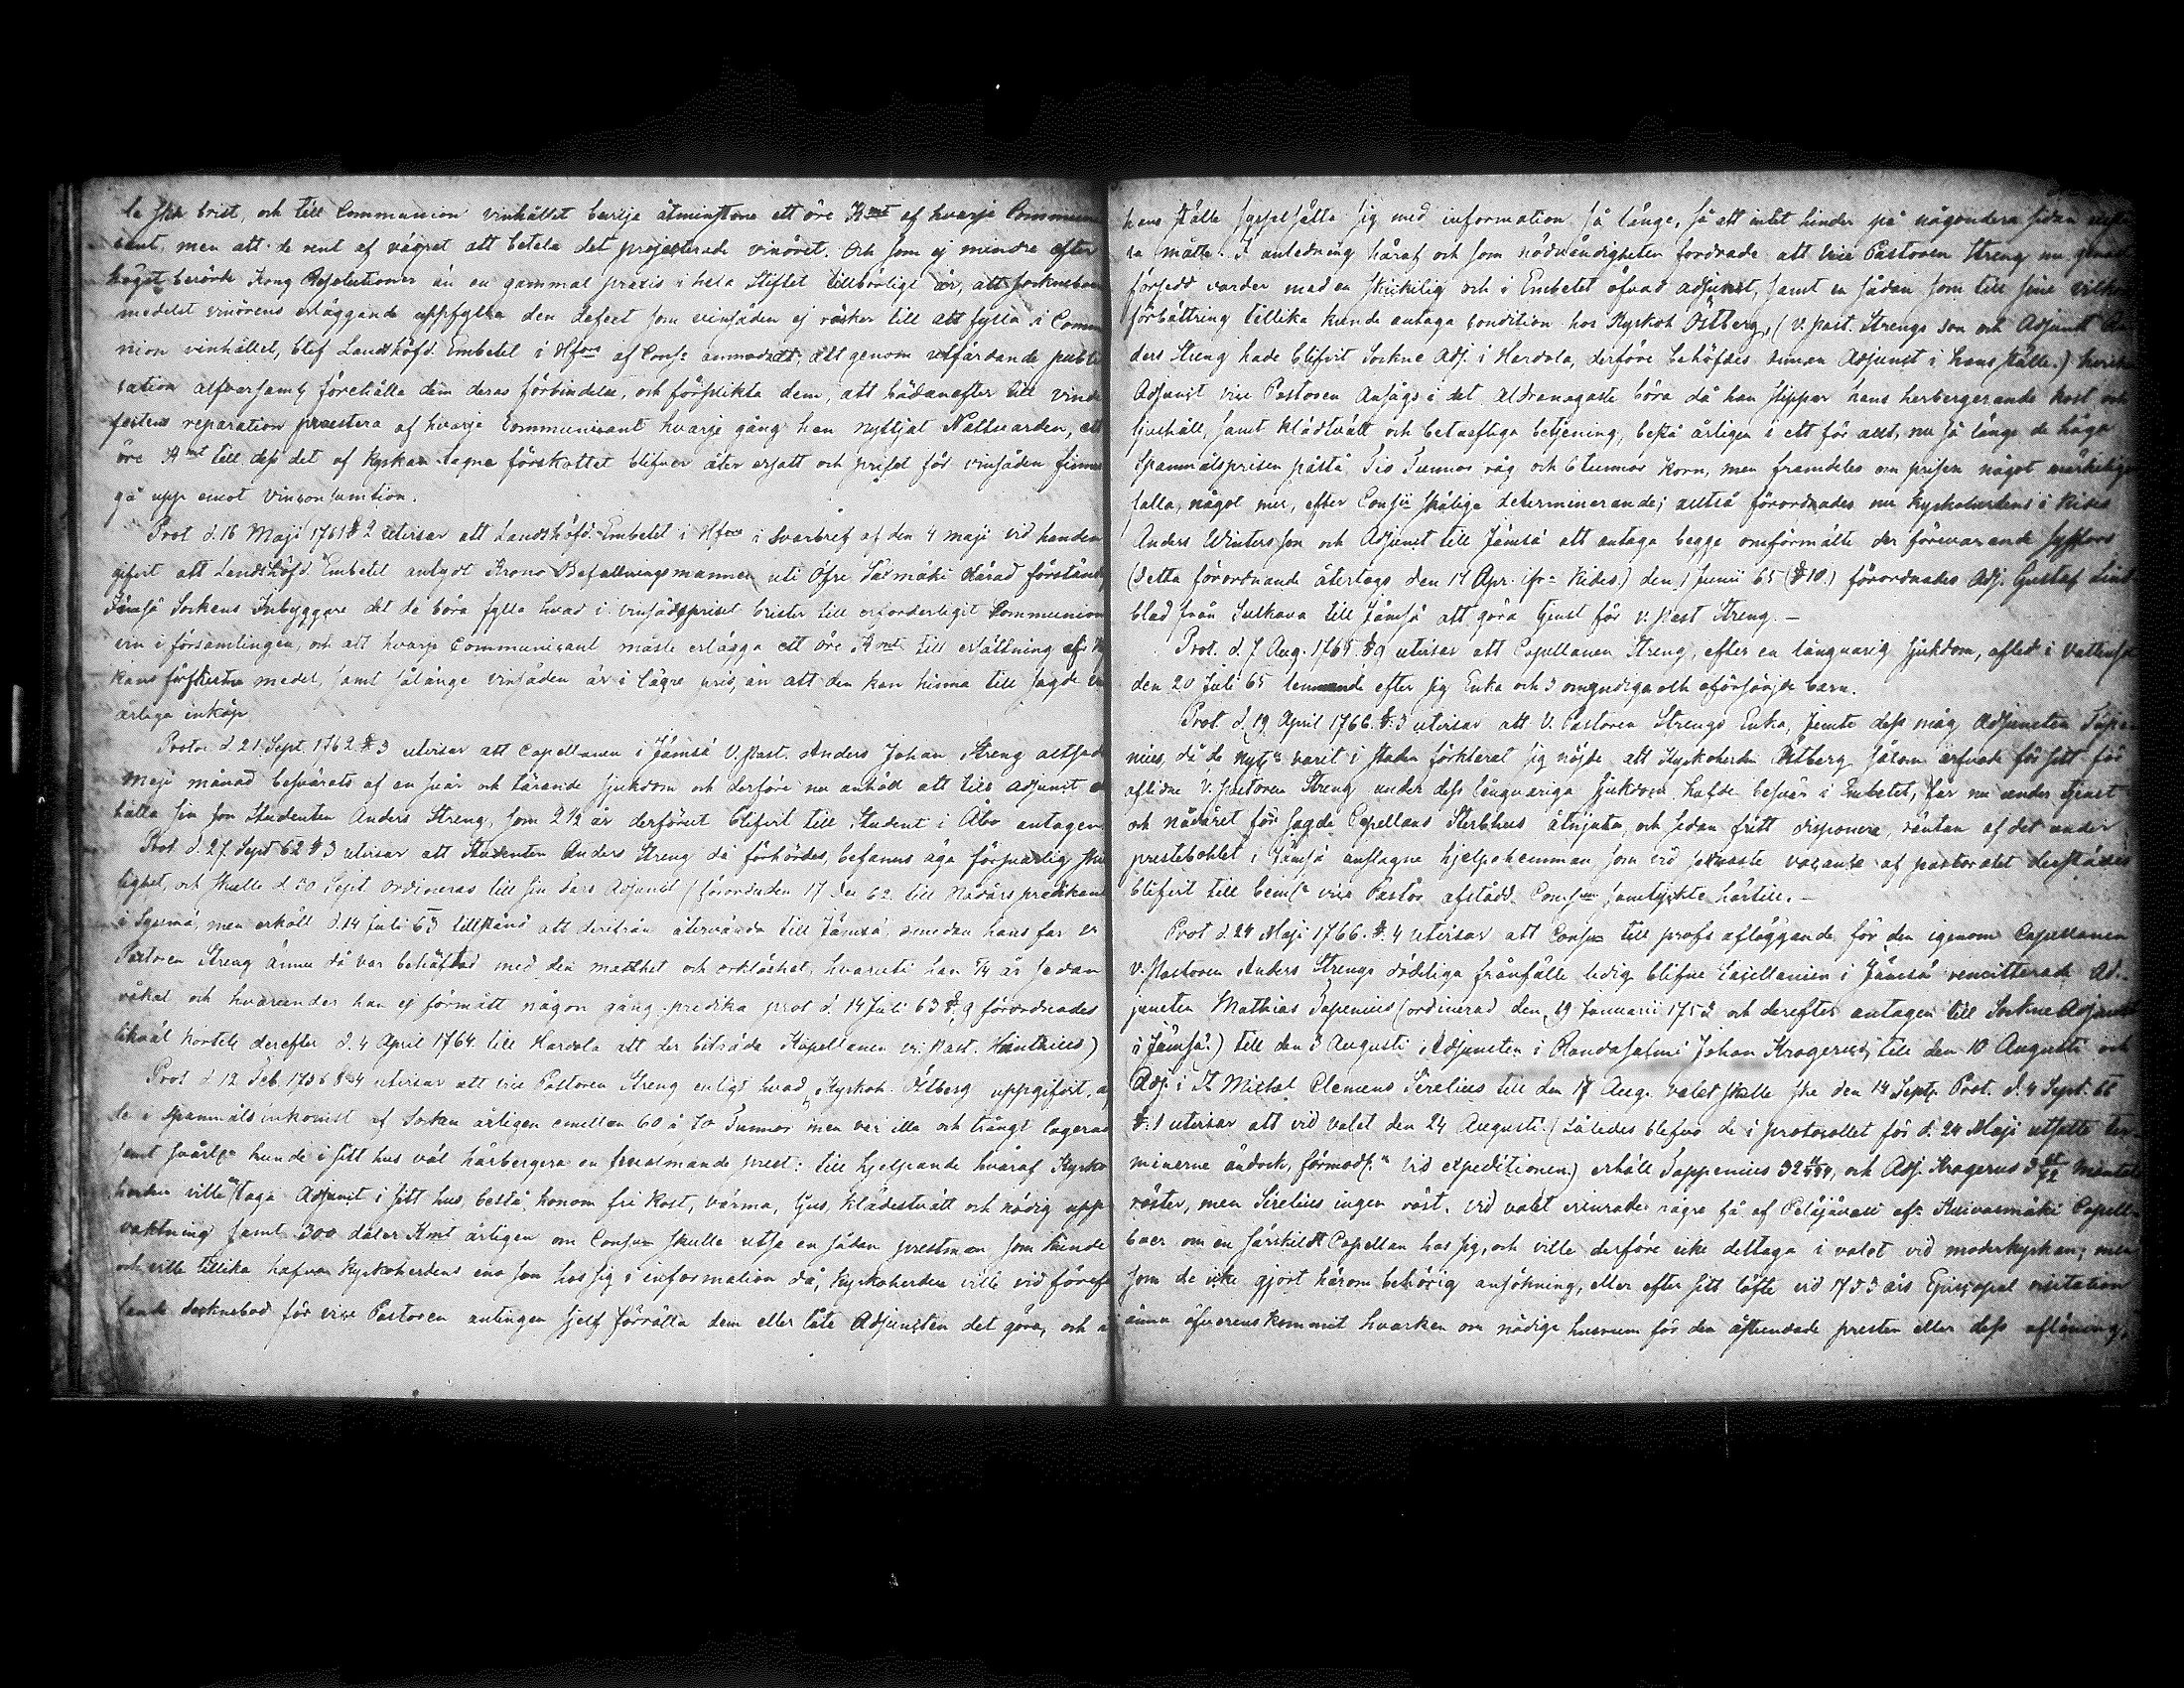 la ske brist, och till Communion vinhållet berlje åtminstone ett öre Kmt af hvarje Commun
icant, men att de rent af vägrat att betala det projecterade vinöret. Och som ej mindre efter
höget berörde Kong Resolutioner än en gammal praxis i hela Stiftet tillbörligt är, att sockneboer
medelst vinörens erläggande uppfylla den defect som vinsäden ej räcker till att fylla i Commu
nion vinhållet, blef Landshöfd. Embetet i Hfors af Cons: anmodadt, att genom utfärdande publi
cation alfversamt förehålla dem deras förbindelse, och förplikta dem, att hädanefter till vinde
fectens reparation praestera af hvarje Communicant hvarje gång han nyttjat Nattvarden, ett
öre Kmt till dess det af kyrkan tagna förskottet blifver åter ersatt och priset för vinsäden finnes
gå upp emot vinconsumtion.
Prot d. 16 Maji 1761 § 2 utvisar att Landshöfd. Embetet i Hfors i Svarbref af den 4 maji vid handen
gifvit att Landshöfd. Embetet antydt Krono Befallningsmannen uti Öfre Satmäki Härad förständ
Jämsä Sockens Inbyggare det de böra fylla hvad i vinsädspriset brister till erforderligit Communion
vin i församlingen, och att hvarje Communicant måste erlägga ett öre Kmt till ersättning af Kyr
kans förskutne medel, samt sålänge vinsäden är i lägre pris, än att den kan hinna till sagde vin
årliga inköp.
Protoc d. 21 Sept. 1762 § 3 utvisar att Capellanen i Jämsä V. Past. Anders Johan Streng altsedan
Maji månad besvärats af en svår och tärande sjukdom och derföre nu anhöd att till adjunct er
hålla sin son Studenten Anders Streng, som 2 1/2 år derförut blifvit till Student i Åbo antagen
Prot d. 27. Sept 62 § 3 utvisar att Studenten Anders Streng då förhördes, befanns äga försvarlig skic
lighet, och skulle d. 30 Sept ordineras till sin Fars Adjunct (förordnaden 17 Dec 62 till Nådårs predikant
i Sysmä, men erhöll d. 14 Juli 63 tillstånd att derifrån återvända till Jämsä, emedan hans far v
Pastoren Streng ännu då var behäftad med den matthet och orklöshet, hvaruti han 5/4 år sedan
råkat och hvarunder han ej förmått någon gång predika prot d. 14 Juli 63 § 9 förordnades
likväl kortelt derefter d. 4 April 1764 till Hardola att der biträda Kapellanen vi: Past. Hinthius)
Prot d. 12 Feb. § 4 utvisar att vice Pastoren Streng enligt hvad Kyrkoh. Östberg uppgifvit,
spannmåls inkomst af Socken årligen emellan 60 à 70 Tunnor men var illa och trångt logerad
samt svårl:n kunde i sitt hus väl härbergera en främmande prest: till hjelpande hvaraf Kyrko
herden ville taga Adjunct i sitt hus, bestå honom fri kost, värma, ljus, klädestvätt och nödig upp
vaktning samt 300 daler Kmt årligen om Cons:um skulle utse en sådan prestman som kunde
och ville tillika hafva kyrkoherdens ena son hos sig i information då, kyrkoherden ville vid förefal
lande socknebod för vice Pastoren antingen sjelf förrätta dem eller låta Adjuncten det göra, och
hans ställe sysselsätta sig med information så länge, så att intet hinder på någondera sidan
måtte. I anledning häraf och som nödvändigheten fordrade att vice Pastoren Streng nu
försedd varder med en skickelig och i Embetet öfvad adjunct, samt en sådan som till sine vilkors
förbättring tillika kunde antaga condition hos Kyrkoh Östberg, (v. Past. Strengs son och Adjunct An
ders Streng hade blifvit Sockne Adj. i Hardola, derföre behöfdes annan Adjunct i hans ställe.) hvilken
Adjunct vice Pastoren ansågs i det aldranogaste böra då han slipper hans herbergerande kost och
ljushåll, samt klädtvätt och betarftiga betjening, bestå årligen i ett för allt, nu så länge de höga
Spannmålsprisen påstå, Tio Tunnor råg och 6 tunnor korn, men framdeles om prisen något märkeligen
falla, något mer, efter Cons:ii skäliga determinerande; altså förordnades nu kyrkoherdens i Kides
Anders Winters son och Adjunct till Jämsä att antaga begge omförmälte der förevarande sysslor
(detta förordnande återtogs den 17 Apr. Kides.) den 1 Junii 65 (§ 10.) förordnades Adj. Gustaf Lind
blad från Sulkava till Jämsä att göra tjenst för v. Past Streng. —
Prot. d. 7 Aug. 1765 § 9 utvisar att Capellanen Streng, efter en långvarig sjukdom, afled i vattusot
den 20 Juli 65 lemnande efter sig Enka och 3 omyndiga och oförsörjde barn.
Prot. d. 19 April 1766. §. 3 utvisar att V. Pastoren Strengs Enka, jemte dess måg Adjuncten Tape
nius, då de nyl:n varit i staden förklarat sig nöjde att Kyrkoherden Östberg såsom arfvode för sitt för
aflidne V. Pastoren Streng under dess långvariga sjukdom hafde besvär i Embetet, får nu under tjenst
och nådåret för sagde Capellans Sterbhus åtnjuta, och sedan fritt disponera, räntan af det under
prestebohlet i Jämsä anslagne hjelpehemman som vid senaste vacance af pastoratet derstädes
blifvit till bem:te vice Pastor afstådd. Cons:um samtyckte härtill. —
Prot d. 24 Maji 1766. §. 4 utvisar att Cons:um till profs afläggande för den igenom Capellanen
V. Pastoren Anders Strengs dödeliga frånfälle ledig blefne Capellanien i Jämsä remitterade Ad-
juncten Mathias Tapenius (ordinerad den 19 Januarii 1752 och derefter antagen till Sockne Adjunct
i Jämsä.) till den 3 Augusti, Adjuncten i Randasalmi Johan Krogerus, till den 10 Augusti och
Adj. i St Michel Clemens Sirelius till den 17 Aug. valet skulle ske den 14 Sept. Prot. d. 4 Sept. 66
§. 1 utvisar att vid valet den 24 Augusti (Således blefvo de i protocollet för d. 24 Maji utsatte ter-
minerne ändrade, förmodl:n vid expeditionen.) erhöll Tappenius 32, och Adj. Krogerus 3 Mantals
röster, men Sirelius ingen röst. Vid valet erinrade några få af Petäjävesi af: Kuivasmäki Capell-
boer om en särskildt Capellan hos sig, och ville derföre icke deltaga i valet vid moderkyrkan; men
som de icke gjort härom behörig ansökning, eller efter sitt löfte vid 1753 års Episcopal visitation
ännu öfverenskommit hvarken om nödige husrum för den åstundade presten eller dess aflöning,